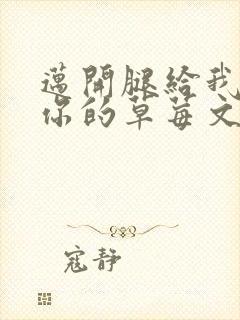 邁開腿給我
你的草莓文
寇靜